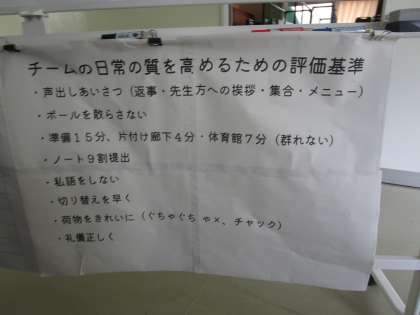 チームの日常の質を高めるための評価基準
・声出しあいさつ（返事・先生方への挨拶・集合・メニュー）
・ボールを散らさない
・準備１５分、片付け廊下４分・体育館７分（群れない）
・ノート９割提出
・私語をしない
・切り替えを早く
・荷物をきれいに（ぐちゃぐちゃ×、チャック）
・礼儀正しく